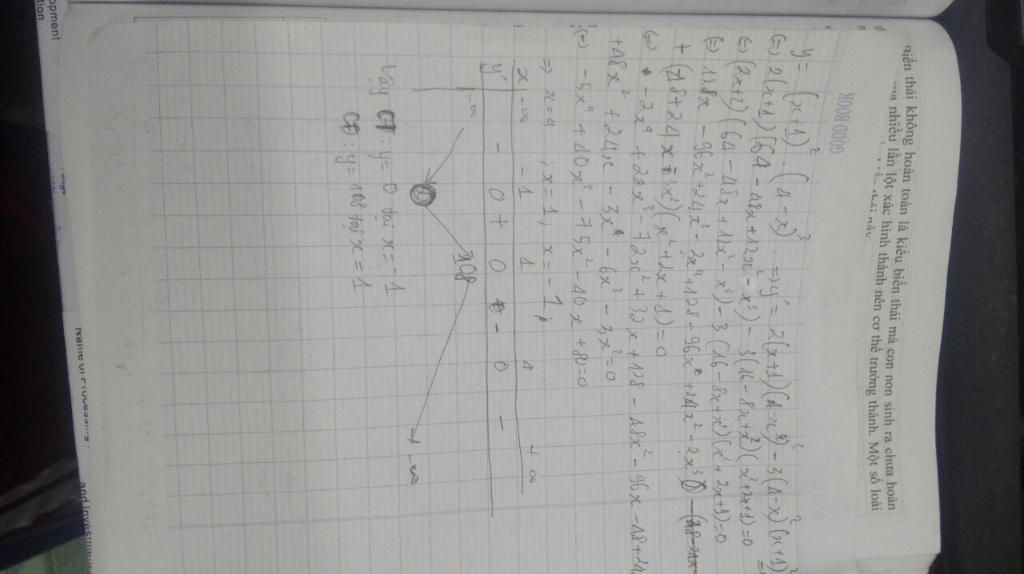 biến thái không hoàn toàn là kiểu biến thái mà con non sinh ra chưa hoàn
nhiều lần lột xác hình thành nên cơ thể trưởng thành. Một số loài
GOOD BOOK
y = (x+1)² . (4-x)³ => y' = 2(x+1)(4-x)³ - 3(4-x)²(x+1)²
(=) 2(x+1)(64 - 48x + 12x² - x³) - 3(16 - 8x + x²)(x²+2x+1) = 0
(=) (2x+2)(64 - 48x + 12x² - x³) - 3(16 - 8x + x²)(x²+2x+1) = 0
(=) 118x - 96x² + 24x³ - 2x⁴ + 128 - 96x + 24x² - 2x³
+ (-48 + 24x - 3x²)(x² + 2x + 1) = 0
(=) - 2x⁴ + 22x³ - 72x² + 32x + 128 - 48x² - 96x - 48 + 24
+ 48x² + 24x - 3x⁴ - 6x³ - 3x² = 0
(=) - 5x⁴ + 40x³ - 75x² - 40x + 80 = 0
=> x = 4 ; x = 1 ; x = -1
x -∞ -1 1 4 +∞
y' - 0 + 0 - 0 -
-∞ 0 108 +∞
Vậy CT: y = 0 tại x = -1
CĐ: y = 108 tại x = 1
opment
tion
and Investment